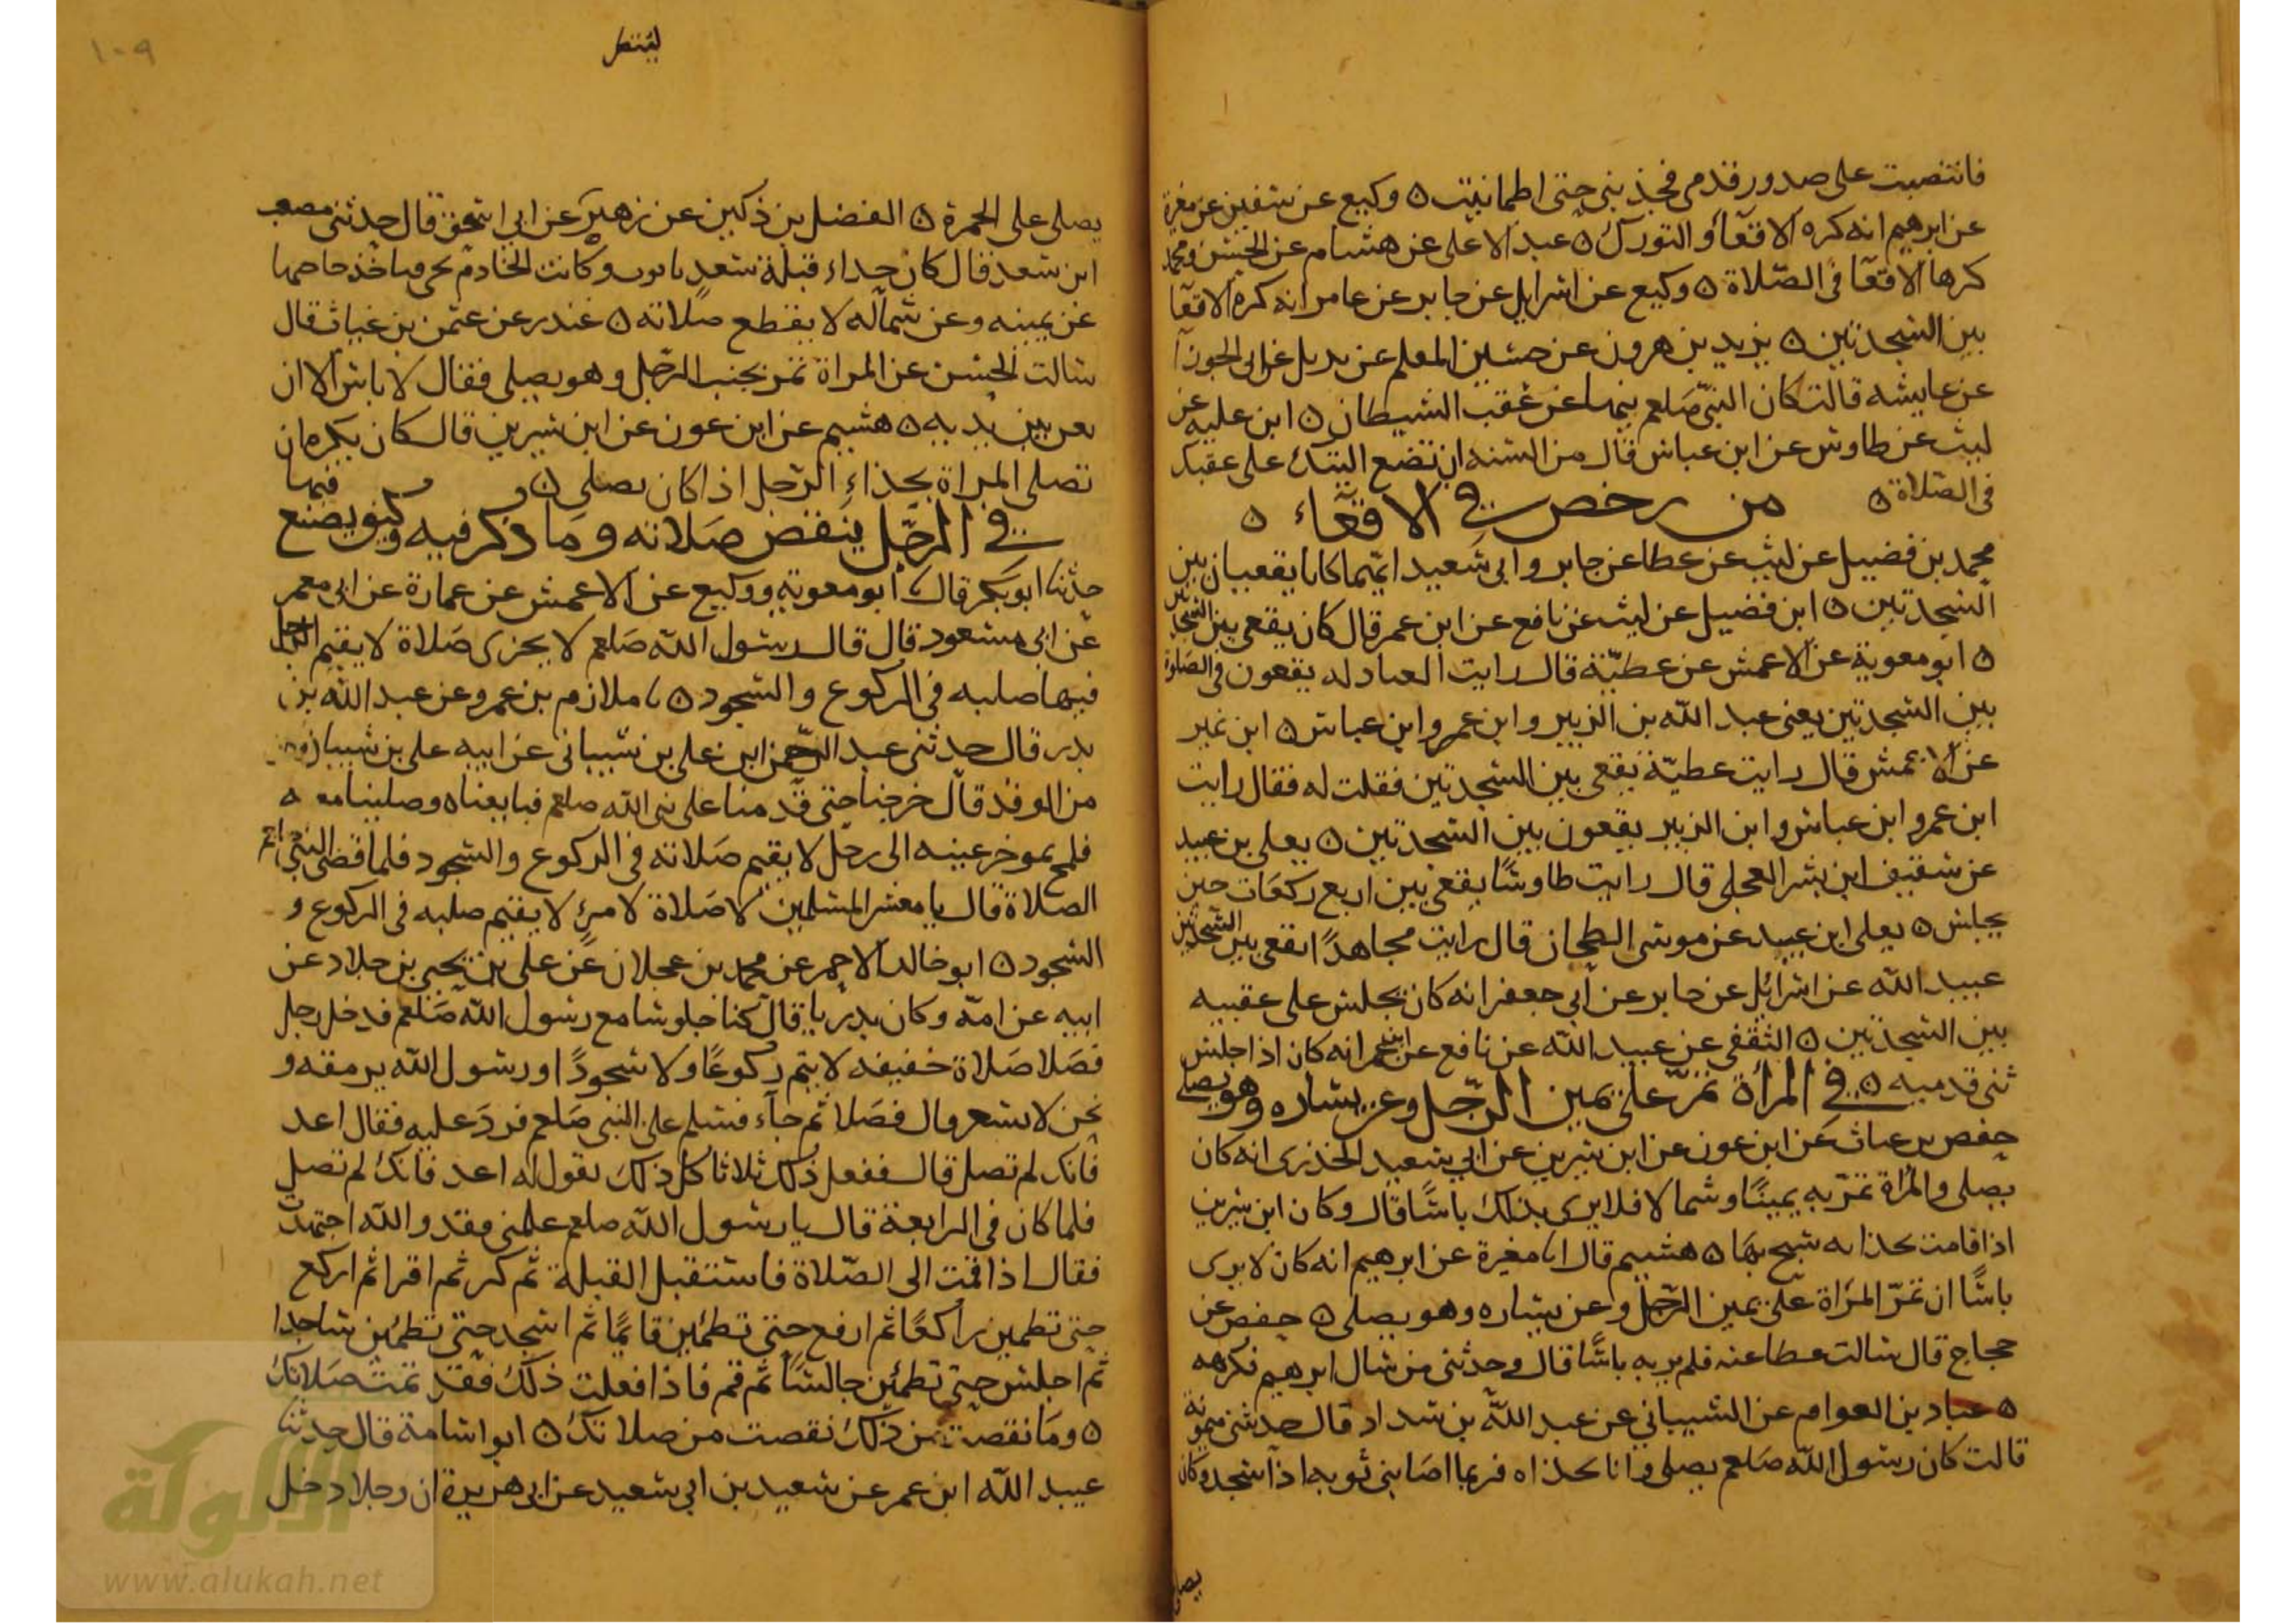 فانتصبت على صدور قدمي فجذبني حتى اطمانيت ٥ وكيع عن سفين عن مغيرة
عن ابرهيم انه كره الاقعآ والتورك ٥ عبد الاعلى عن هشام عن الحسن ومحمد
كرها الاقعآ في الصّلاة ٥ وكيع عن اسرايل عن جابر عن عامر انه كره الاقعآ
بين السجدتين ٥ يزيد بن هرون عن حسين المعلم عن بديل عن ابي الجوزآ
عن عايشه قالت كان النبيّ صَلعم ينها عن عُقب الشيطان ٥ ابن عليه عن
ليث عن طاوس عن ابن عباس قال من السنه ان تضع اليتك على عقبك
في الصّلاة ٥ من رخص في الاقعآء ٥
محمد بن فضيل عن ليث عن عطا عن جابر وابي سَعيد انهما كانا يقعيان بين
السجدتين ٥ ابن فضيل عن ليث عن نافع عن ابن عمر قال كان يقعي بين السجدتين
٥ ابو معوية عن الاعمش عن عطيّة قال رايت العبادله يقعون في الصلوة
بين السجدتين يعني عبد الله بن الزبير وابن عمر وابن عباس ٥ ابن نمير
عن الاعمش قال رايت عطيّة يقعي بين السجدتين فقلت له فقال رايت
ابن عمر وابن عباس وابن الزبير يقعون بين السجدتين ٥ يعلى بن عبيد
عن سفيف ابن بشر العجلي قال رايت طاوسًا يقعي بين اربع ركعات حين
يجلس ٥ يعلى ابن عبيد عن موسى الطحان قال رايت مجاهدًا اقعى بين السجدتين
عبيد الله عن اسرائيل عن جابر عن ابي جعفر انه كان يجلس على عقبيه
بين السجدتين ٥ الثقفي عن عبيد الله عن نافع عن ابن عمر انه كان اذا جلس
ثنى قدميه ٥ في المرأة تمرّ على يمين الرّجل وعن يساره وهو يصلي
حفص بن غياث عن ابن عون عن ابن سيرين عن ابي سعيد الخدري انه كان
يصلي والمرأة تمرّ به يمينًا وشمالا فلا يرى بذلك باسًا قال وكان ابن سيرين
اذا قامت بحذايه سبح بها ٥ هشيم قال انا مغيرة عن ابرهيم انه كان لا يرى
باسًا ان تمرّ المرَاة على يمين الرّجل وعن يساره وهو يصلي ٥ حفص عن
حجاج قال سالت عطا عنه فلم ير به باسًا قال وحدثني من سال ابرهيم فكرهه
٥ عباد بن العوام عن الشيباني عن عبد الله بن شداد قال حدثتني ميمونة
قالت كان رسول الله صَلعم يصلي وانا بحذاه فربما اصَابني ثوبه اذا سجد وكان
يصلي
لينتقل
١٠٩
يصلي على الخمرة ٥ الفضل بن دكين عن زهير عن ابي اسحق قال حدثني مصعب
ابن سعد قال كان حداء قبلة سعد تابوت وكانت الخادم تجي فتاخذ حاجتها
عن يمينه وعن شماله لا يقطع صلاته ٥ غندر عن عثمن بن غياث قال
سالت الحسن عن المراة تمر بجنب الرّجل وهو يصلي فقال لا باس الا ان
تعن بين يديه ٥ هشيم عن ابن عون عن ابن سيرين قال كان يكره ان
تصلي المراة بحذاء الرّجل اذا كان يصلي ٥ فيها
في الرّجل ينقص صَلاته ومَا ذكر فيه وكيف يصنع
حدّثنا ابو بكر قال ابو معوية ووكيع عن الاعمش عن عمارة عن ابي معمر
عن ابي مسعود قال قال رسول الله صَلعم لا يجزى صَلاة لا يقيم الرجل
فيها صلبه في الركوع والسجود ٥ نا ملازم بن عمرو عن عبد الله بن
بدر قال حدثني عبد الرحمن ابن علي بن شيباني عن ابيه علي بن شيبان وكان
من الوفد قال خرجنا حتى قدمنا على نبي الله صلعم فبايعناه وصلينا معه
فلمح بموخر عينه الى رجل لا يقيم صَلاته في الركوع والسجود فلما قضى النبي صلعم
الصلاة قال يا معشر المسلمين لا صَلاة لامرئ لا يقيم صلبه في الركوع و
السجود ٥ ابو خالد الاحمر عن محمد بن عجلان عن علي بن يحيى بن خلاد عن
ابيه عن امّه وكان بدريا قال كنا جلوسا مع رسول الله صَلعم فدخل رجل
فصَلا صَلاة خفيفه لا يتم ركوعًا ولا سجودًا ورسول الله يرمقه و
نحن لا نشعر قال فصَلا ثم جآء فسلم على النبي صَلعم فردَ عليه فقال اعد
فانك لم تصل قال ففعل ذلك ثلاثا كل ذلك يقول له اعد فانك لم تصل
فلما كان في الرابعة قال يا رسول الله صلعم علمني فقد والله اجتهدت
فقال اذا قمت الى الصّلاة فاستقبل القبلة ثم كبر ثم اقرا ثم اركع
حتى تطمين راكعًا ثم ارفع حتى تطمئن قائمًا ثم اسجد حتى تطمئن ساجدا
ثم اجلس حتى تطمئن جالسًا ثم قم فاذا فعلت ذلك فقد تمت صَلاتك
٥ ومَا نقصت من ذلك نقصت من صلاتك ٥ ابو اسامة قال حدثنا
عبيد الله ابن عمر عن سعيد بن ابي سعيد عن ابي هريرة ان رجلا دخل
الألوكة
www.alukah.net